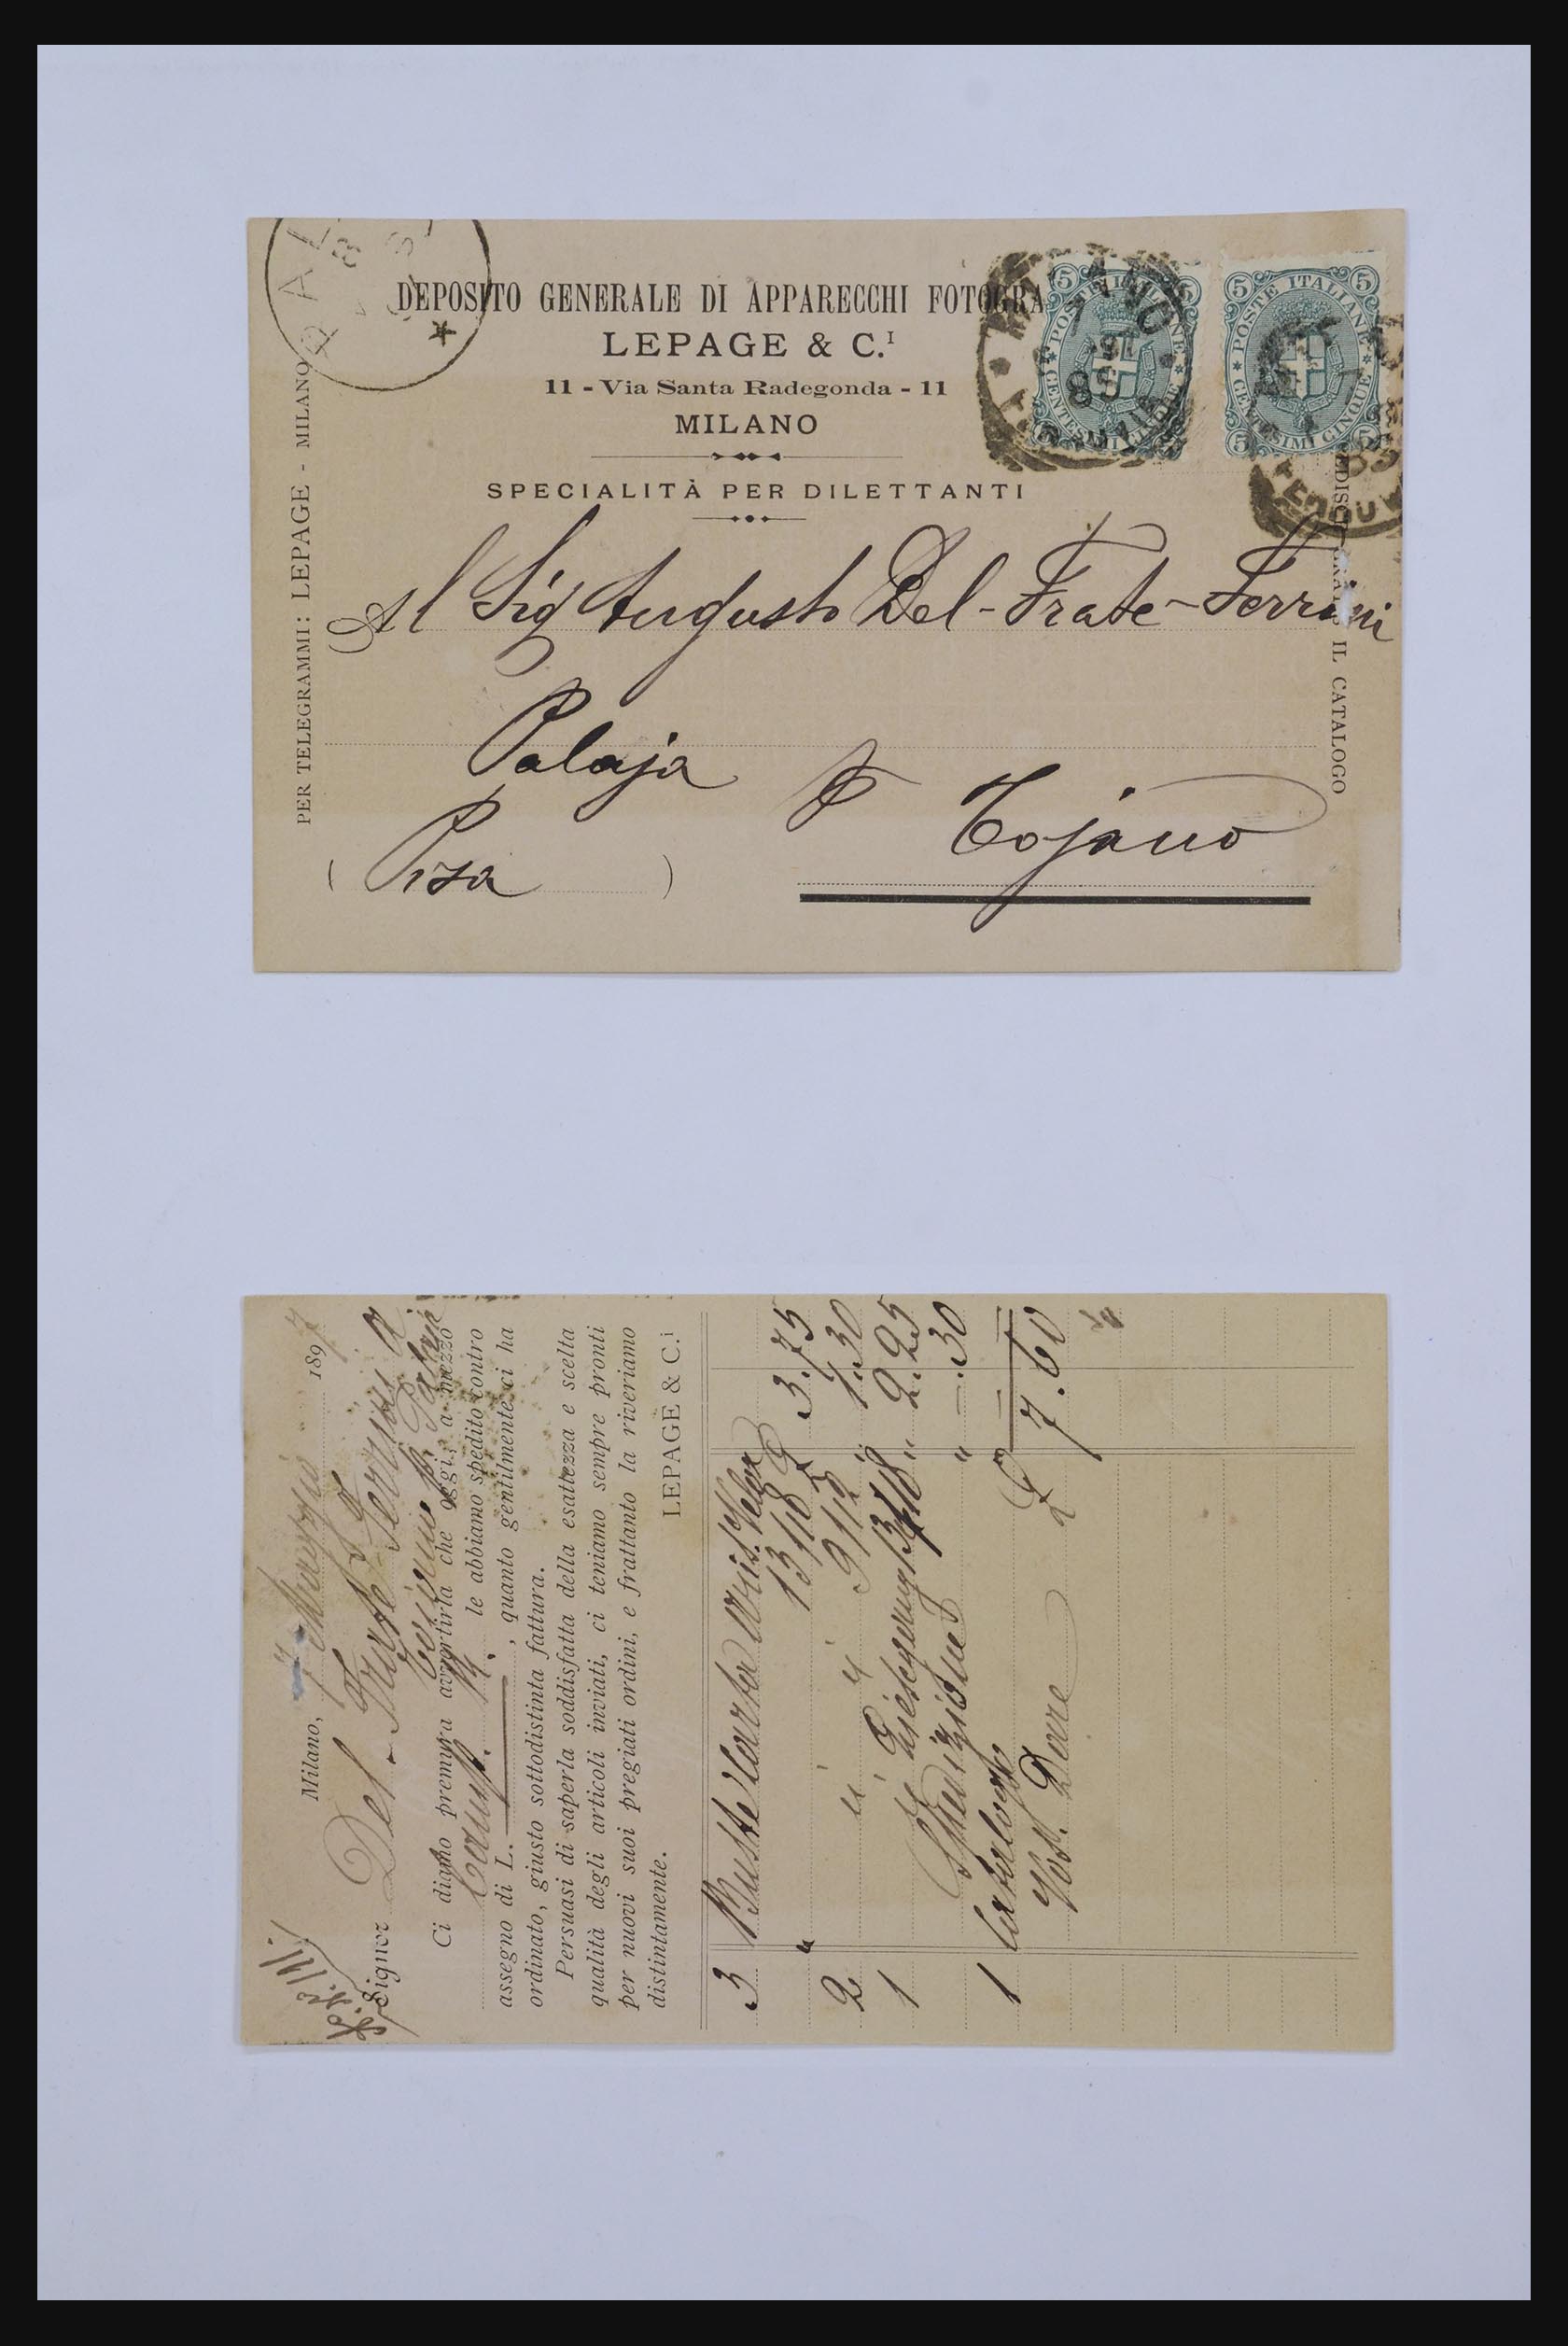 DEPOSITO GENERALE DI APPARECCHI FOTOGRA
LEPAGE & C.I
11 - Via Santa Radegonda - 11
MILANO
SPECIALITÀ PER DILETTANTI
PER TELEGRAMMI: LEPAGE - MILANO
IL CATALOGO
5 5
POSTE ITALIANE
CENTESIMI CINQUE
5 5
5 5
POSTE ITALIANE
CENTESIMI CINQUE
5 5
MILANO
Al Sig Augusto Del-Frate-Ferrini
Palaja
Tojano
( Pisa )
Milano, Maggio 1897
Signor Del-Frate Ferrini A
Ci diamo premura avvertirla che oggi, a mezzo
le abbiamo spedito contro
assegno di L. , quanto gentilmente ci ha
ordinato, giusto sottodistinta fattura.
Persuasi di saperla soddisfatta della esattezza e scelta
qualità degli articoli inviati, ci teniamo sempre pronti
per nuovi suoi pregiati ordini, e frattanto la riveriamo
distintamente.
LEPAGE & C.i
3 Buste Carta
" 13/18 3.75
2 " " 9/12 " 1.30
1 " 13/18 " 2.25
Spedizione " -.30
1 Catalogo
Vos. Dare 7.60